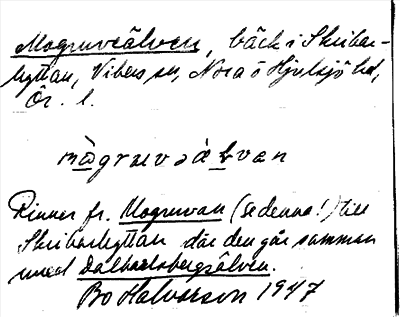 Mogruveälven, bäck i Skribar-
hyttan, Vikers sn, Nora o Hjulsjö hd,
Ör. l.
Rinner fr. Mogruvan (se denna!) till
Skribarhyttan där den går samman
med Dalkarlsbergsälven.
Bo Halvarson 1947